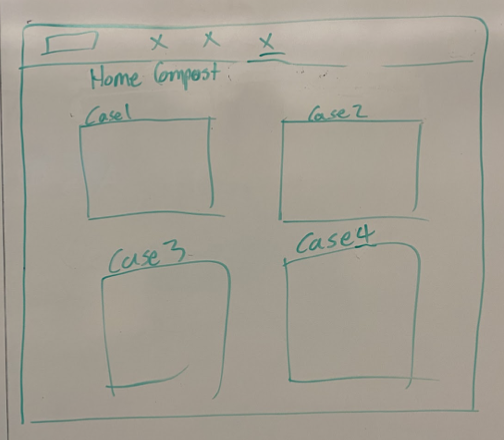 x x x
Home Compost
Case1 Case2
Case 3 Case4